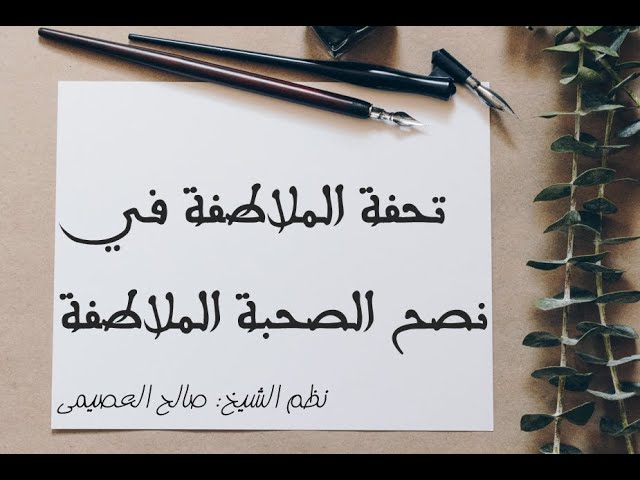 تحفة الملاطفة في
نصح الصحبة الملاطفة
نظم الشيخ: صالح العصيمى